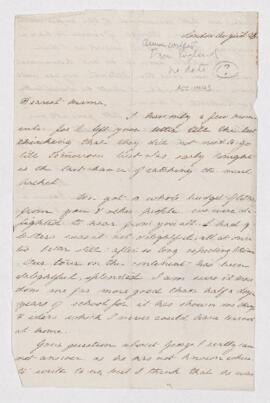 London August 25
from England
no date
?
ACC 1443
Dearest Mama,
I have only a few mom-
ents for I left your letter till the last
thinking that they did not need to go
till tomorrow but also early tonight
is the last chance of catching the mail
packet.
We got a whole budget of letters
from you & other people we were de-
lighted to hear from you all. I had 9
letters was it not delightful all at once
after so long expecting them
Our tour on the continent has been
delightful, splendid I am sure it has
done me far more good than half a dozen
years of school for it has shown me things
& ideas which I never could have learned
at home.
Your question about George I really can
not answer as he has not known where
to write to us, but I think that he was